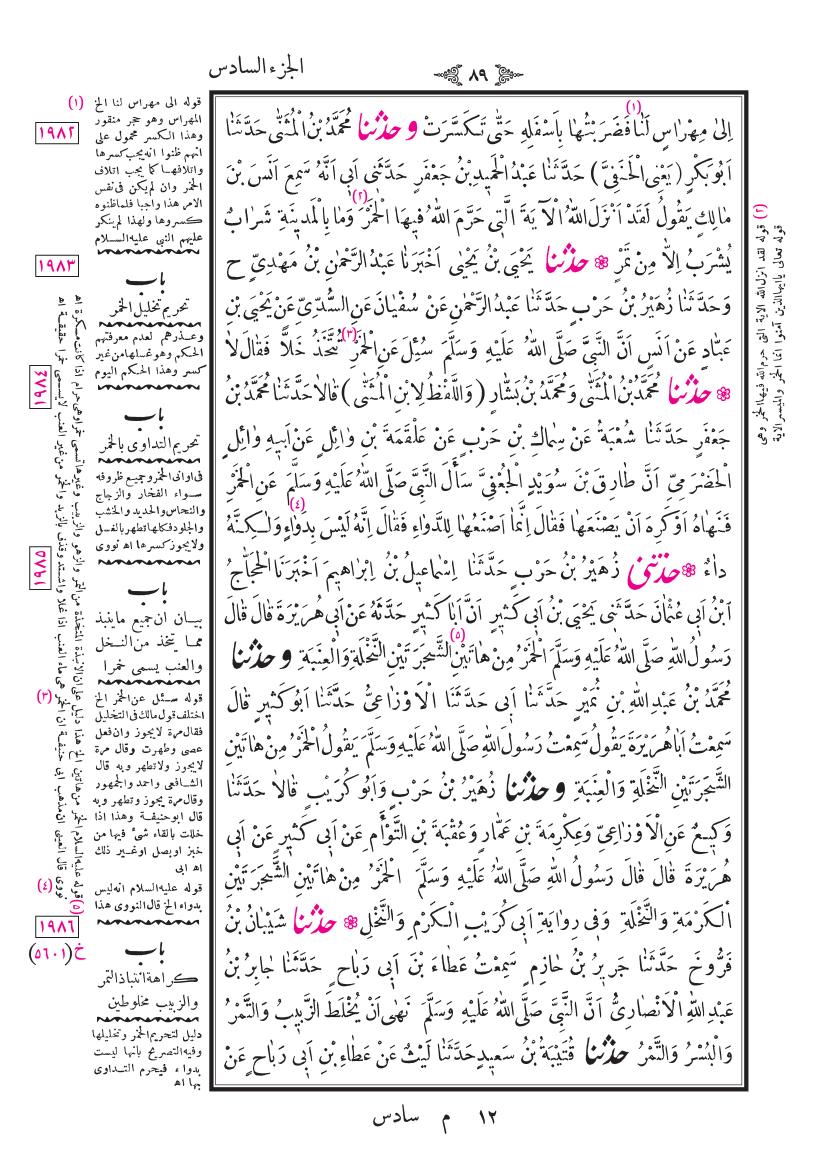 الجزء السادس
٨٩
اِلىٰ مِهْرَاسٍ لَنَا فَضَرَبْتُهَا بِاَسْفَلِهِ حَتّٰى تَكَسَّرَتْ وحدثنا مُحَمَّدُ بْنُ الْمُثَنّٰى حَدَّثَنَا (١)
اَبُو بَكْرٍ (يَعْنِى الْحَنَفِىَّ) حَدَّثَنَا عَبْدُ الْحَمِيدِ بْنُ جَعْفَرٍ حَدَّثَنِى اَبِى اَنَّهُ سَمِعَ اَنَسَ بْنَ
مَالِكٍ يَقُولُ لَقَدْ اَنْزَلَ اللّٰهُ الْآيَةَ الَّتِى حَرَّمَ اللّٰهُ فِيهَا الْخَمْرَ وَمَا بِالْمَدِينَةِ شَرَابٌ (٢)
يُشْرَبُ اِلَّا مِنْ تَمْرٍ ۞ حدثنا يَحْيَى بْنُ يَحْيٰى اَخْبَرَنَا عَبْدُ الرَّحْمٰنِ بْنُ مَهْدِىٍّ ح
وَحَدَّثَنَا زُهَيْرُ بْنُ حَرْبٍ حَدَّثَنَا عَبْدُ الرَّحْمٰنِ عَنْ سُفْيَانَ عَنِ السُّدِّىِّ عَنْ يَحْيَى بْنِ
عَبَّادٍ عَنْ اَنَسٍ اَنَّ النَّبِىَّ صَلَّى اللّٰهُ عَلَيْهِ وَسَلَّمَ سُئِلَ عَنِ الْخَمْرِ (٣) تُتَّخَذُ خَلًّا فَقَالَ لَا
۞ حدثنا مُحَمَّدُ بْنُ الْمُثَنّٰى وَمُحَمَّدُ بْنُ بَشَّارٍ (وَاللَّفْظُ لِابْنِ الْمُثَنّٰى) قَالَا حَدَّثَنَا مُحَمَّدُ بْنُ
جَعْفَرٍ حَدَّثَنَا شُعْبَةُ عَنْ سِمَاكِ بْنِ حَرْبٍ عَنْ عَلْقَمَةَ بْنِ وَائِلٍ عَنْ اَبِيهِ وَائِلٍ
الْحَضْرَمِىِّ اَنَّ طَارِقَ بْنَ سُوَيْدٍ الْجُعْفِىَّ سَأَلَ النَّبِىَّ صَلَّى اللّٰهُ عَلَيْهِ وَسَلَّمَ عَنِ الْخَمْرِ
فَنَهَاهُ اَوْ كَرِهَ اَنْ يَصْنَعَهَا فَقَالَ اِنَّمَا اَصْنَعُهَا لِلدَّوَاءِ فَقَالَ اِنَّهُ لَيْسَ بِدَوَاءٍ وَلٰكِنَّهُ (٤)
دَاءٌ ۞ حدثنى زُهَيْرُ بْنُ حَرْبٍ حَدَّثَنَا اِسْمَاعِيلُ بْنُ اِبْرَاهِيمَ اَخْبَرَنَا الْحَجَّاجُ
ابْنُ اَبِى عُثْمَانَ حَدَّثَنِى يَحْيَى بْنُ اَبِى كَثِيرٍ اَنَّ اَبَا كَثِيرٍ حَدَّثَهُ عَنْ اَبِى هُرَيْرَةَ قَالَ قَالَ
رَسُولُ اللّٰهِ صَلَّى اللّٰهُ عَلَيْهِ وَسَلَّمَ الْخَمْرُ مِنْ هَاتَيْنِ (٥) الشَّجَرَتَيْنِ النَّخْلَةِ وَالْعِنَبَةِ وحدثنا
مُحَمَّدُ بْنُ عَبْدِ اللّٰهِ بْنِ نُمَيْرٍ حَدَّثَنَا اَبِى حَدَّثَنَا الْاَوْزَاعِىُّ حَدَّثَنَا اَبُو كَثِيرٍ قَالَ
سَمِعْتُ اَبَا هُرَيْرَةَ يَقُولُ سَمِعْتُ رَسُولَ اللّٰهِ صَلَّى اللّٰهُ عَلَيْهِ وَسَلَّمَ يَقُولُ الْخَمْرُ مِنْ هَاتَيْنِ
الشَّجَرَتَيْنِ النَّخْلَةِ وَالْعِنَبَةِ وحدثنا زُهَيْرُ بْنُ حَرْبٍ وَاَبُو كُرَيْبٍ قَالَا حَدَّثَنَا
وَكِيعٌ عَنِ الْاَوْزَاعِىِّ وَعِكْرِمَةَ بْنِ عَمَّارٍ وَعُقْبَةَ بْنِ التَّوْأَمِ عَنْ اَبِى كَثِيرٍ عَنْ اَبِى
هُرَيْرَةَ قَالَ قَالَ رَسُولُ اللّٰهِ صَلَّى اللّٰهُ عَلَيْهِ وَسَلَّمَ الْخَمْرُ مِنْ هَاتَيْنِ الشَّجَرَتَيْنِ
الْكَرْمَةِ وَالنَّخْلَةِ وَفِى رِوَايَةِ اَبِى كُرَيْبٍ الْكَرْمِ وَالنَّخْلِ ۞ حدثنا شَيْبَانُ بْنُ
فَرُّوخَ حَدَّثَنَا جَرِيرُ بْنُ حَازِمٍ سَمِعْتُ عَطَاءَ بْنَ اَبِى رَبَاحٍ حَدَّثَنَا جَابِرُ بْنُ
عَبْدِ اللّٰهِ الْاَنْصَارِىُّ اَنَّ النَّبِىَّ صَلَّى اللّٰهُ عَلَيْهِ وَسَلَّمَ نَهٰى اَنْ يُخْلَطَ الزَّبِيبُ وَالتَّمْرُ
وَالْبُسْرُ وَالتَّمْرُ حدثنا قُتَيْبَةُ بْنُ سَعِيدٍ حَدَّثَنَا لَيْثٌ عَنْ عَطَاءِ بْنِ اَبِى رَبَاحٍ عَنْ
(٢) قوله لقد انزل الله الآية التى حرم الله فيها الخمر وهى
قوله تعالى يا ايها الذين آمنوا انما الخمر والميسر الآية
(١) قوله الى مهراس لنا الخ
المهراس وهو حجر منقور
وهذا الكسر محمول على
انهم ظنوا انه يجب كسرها
واتلافها كما يجب اتلاف
الخمر وان لم يكن فى نفس
الامر هذا واجبا فلما ظنوه
كسروها ولهذا لم ينكر
عليهم النبى عليه السلام
باب
تحريم تخليل الخمر
وعذرهم لعدم معرفتهم
الحكم وهو غسلها من غير
كسر وهذا الحكم اليوم
باب
تحريم التداوى بالخمر
فى اوانى الخمر وجميع ظروفه
سواء الفخار والزجاج
والنحاس والحديد والخشب
والجلود فكلها تطهر بالغسل
ولا يجوز كسرها اه نووى
باب
بيان ان جميع ما ينبذ
مما يتخذ من النخل
والعنب يسمى خمرا
(٣) قوله سئل عن الخمر الخ
اختلف قول مالك فى التخليل
فقال مرة لا يجوز وان فعل
عصى وطهرت وقال مرة
لا يجوز ولا تطهر وبه قال
الشافعى واحمد والجمهور
وقال مرة يجوز وتطهر وبه
قال ابو حنيفة وهذا اذا
خللت بالقاء شئ فيها من
خبز او بصل او غير ذلك
اه ابى
(٤) قوله عليه السلام انه ليس
بدواء الخ قال النووى هذا
باب
كراهة انتباذ التمر
والزبيب مخلوطين
دليل لتحريم الخمر وتخليلها
وفيه التصريح بانها ليست
بدواء فيحرم التداوى
بها اه
(٥) قوله عليه السلام الخمر من هاتين الخ هذا دليل على ان الانبذة المتخذة من التمر والزهو والزبيب وغيرها تسمى خمرا وهى حرام اذا كانت مسكرة اه
نووى قال العينى ان مذهب ابى حنيفة ان الخمر هى ماء العنب اذا غلا واشتد وقذف بالزبد والخمر من غير العنب لا يسمى خمرا حقيقة اه
١٩٨٢
١٩٨٣
١٩٨٤
١٩٨٥
١٩٨٦
خ (٥٦٠١)
١٢ م سادس